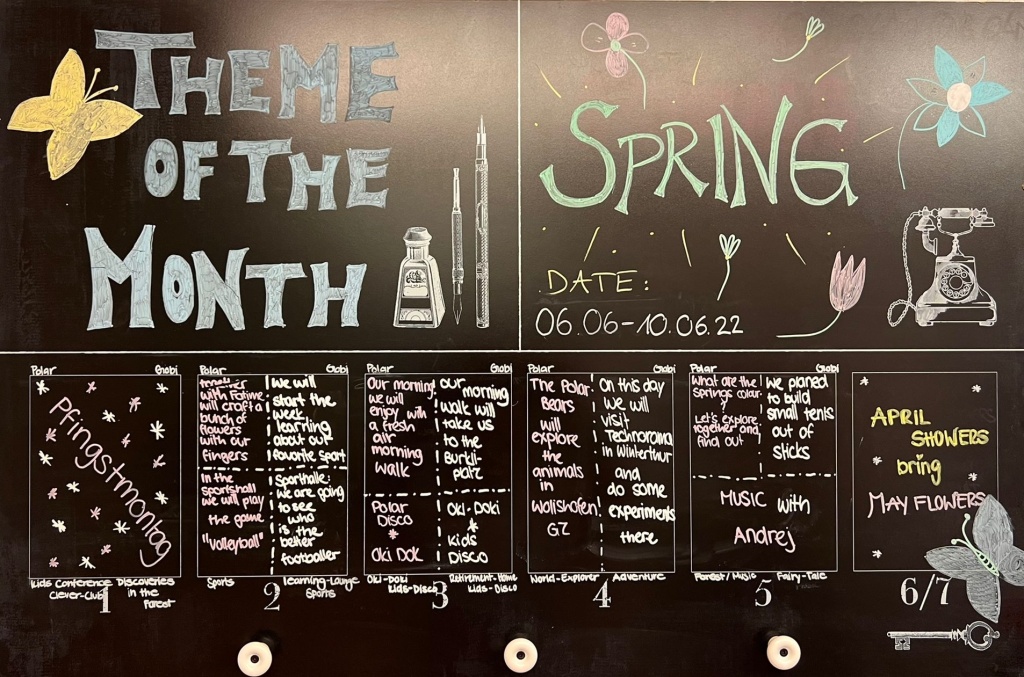 THEME
OF THE
MONTH
SPRING
DATE:
06.06-10.06.22
Polar
Globi
Pfingstmontag
Kids Conference
Clever-Club
Discoveries
in the
Forest
1
Polar
Globi
together
with Fatime
will craft a
bunch of
flowers
with our
fingers
we will
start the
week
learning
about our
favorite sport
In the
sportshall
we will play
the game
"Volleyball"
Sporthalle:
we are going
to see
who
is the
better
footballer
Sports
learning-Lounge
Sports
2
Polar
Globi
Our morning
we will
enjoy with
a fresh
air
morning
walk
our
morning
walk will
take us
to the
Bürkli-
platz
Polar
Disco
*
Oki Dok
Oki-Doki
*
Kids
Disco
Oki-Doki
Kids-Disco
Retirement-Home
Kids-Disco
3
Polar
Globi
The Polar
Bears
will
explore
the
animals
in
Wollishofen!
GZ
On this day
we will
visit
Technorama
in Winterthur
and
do some
experiments
there
World-Explorer
Adventure
4
Polar
Globi
What are the
springs colour
?
Let's explore
together and
find out
we planed
to build
small tents
out of
sticks
MUSIC with
Andrej
Forest/Music
Fairy-Tale
5
APRIL
SHOWERS
bring
MAY FLOWERS
6/7